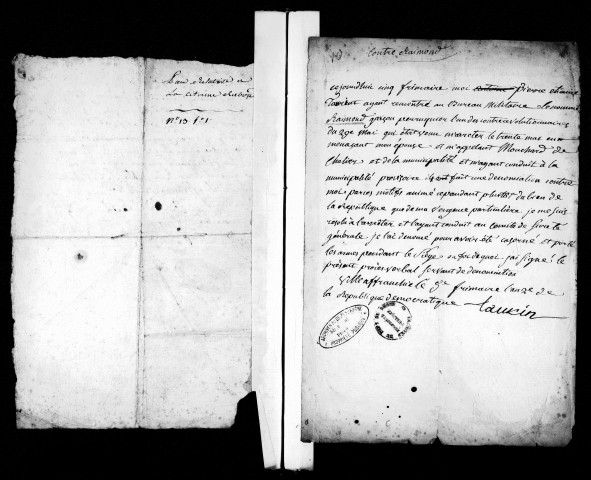 relative a
La citoyenne
n° 13 P. 1
Contre Raimond
cejourdhui cinq frimaire moi pierre
ayant rencontré au bureau Militaire le nommé
Raimond garçon perruquier l'un des contrerevolutionnaires
du 29e Mai qui étoit venu m'arreter le trente mai en
menaçant mon épouse et m'apelant Mouchard de
Chalier et de la municipalité et m'ayant conduit à la
municipalité provisoire fait une denonciation contre
moi par ces motifs animé cependant plutot du bien de
la Republique que de ma vengeance particulière je me suis
resolu à l'arreter et l'ayant conduit au comité de surete
générale je l'ai denoncé pour avoir été caserné et porté
les armes pendant le Siege en foi de quoi j'ai signé le
présent procès verbal servant de denonciation
Ville affranchie le 5e frimaire l'an 2e de
la republique democratique